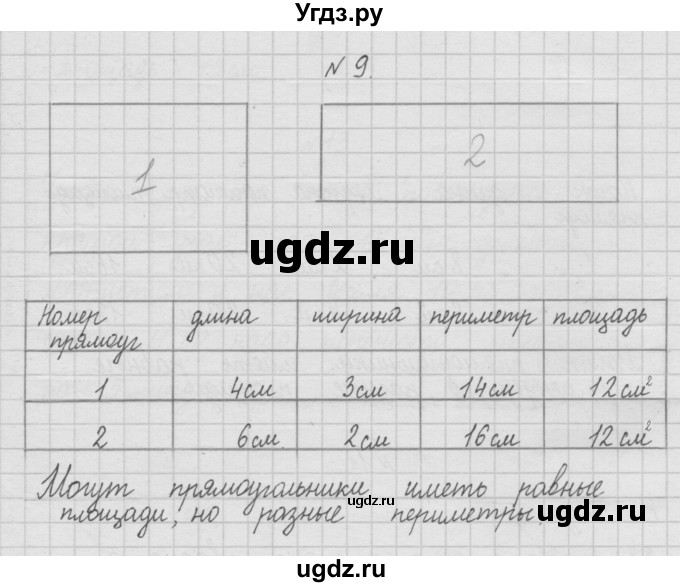 Угдз.ру
№ 9.
1
2
ugdz.ru
Номер прямоуг | длина | ширина | периметр | площадь
1 | 4см | 3см | 14см | 12см²
2 | 6см | 2см | 16см | 12см²
Могут прямоугольники иметь равные
площади, но разные периметры.
ugdz.ru
ugdz.ru
ugdz.ru